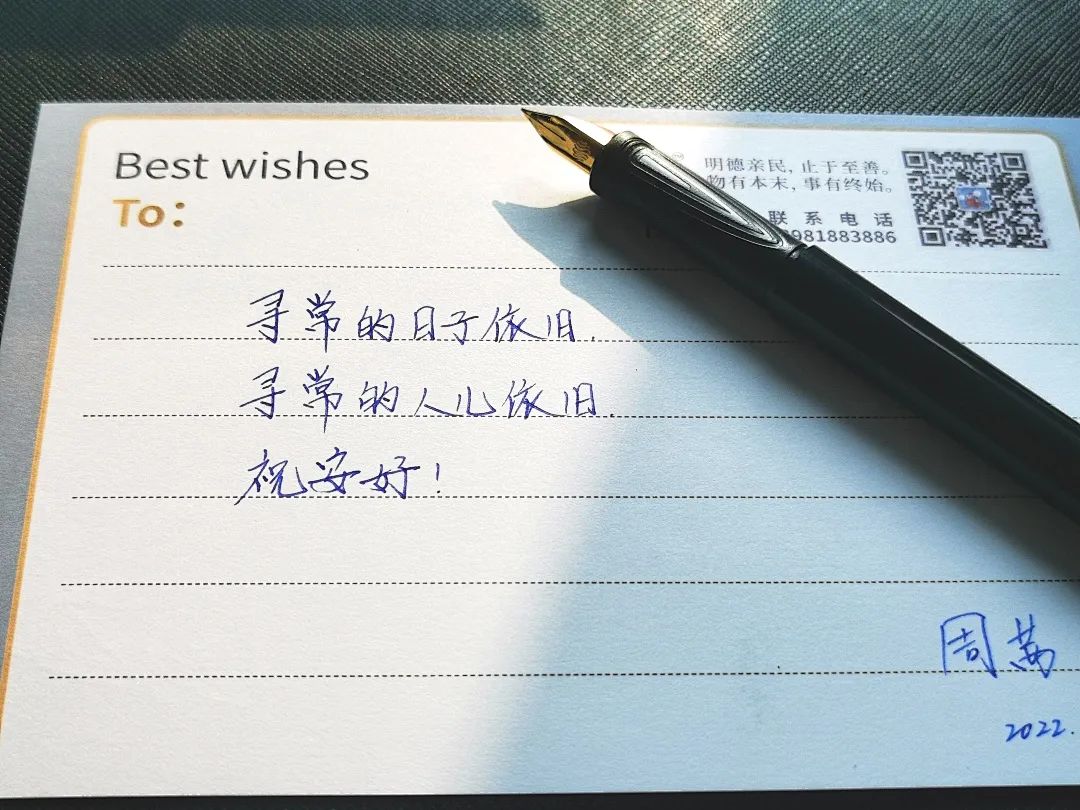 Best wishes
To：
明德亲民，止于至善。
物有本末，事有终始。
联系电话
981883886
寻常的日子依旧.
寻常的人儿依旧.
祝安好！
周
2022.